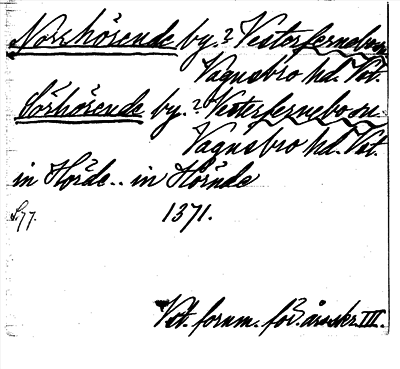 Norrhörende by. i Vesterfernebo sn
Vagnsbro hd. Vst.
Sörhörende by. i Vesterfernebo sn.
Vagnsbro hd. Vst.
in Hörde.. in Hörnde
1371.
Vst. fornm. för. årsskr. III.